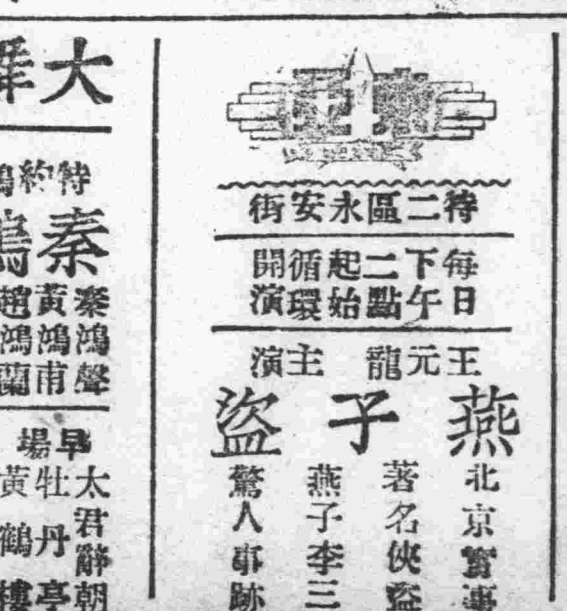 特二區永安街
每日
下午
二點
起始
循環
開演
王元龍 主演
燕子盜
北京實事
著名俠盜
燕子李三
驚人事跡
大舞
特約
秦
秦鴻聲
黃鴻甫
趙鴻蘭
早場
太君辭朝
牡丹亭
黃鶴樓